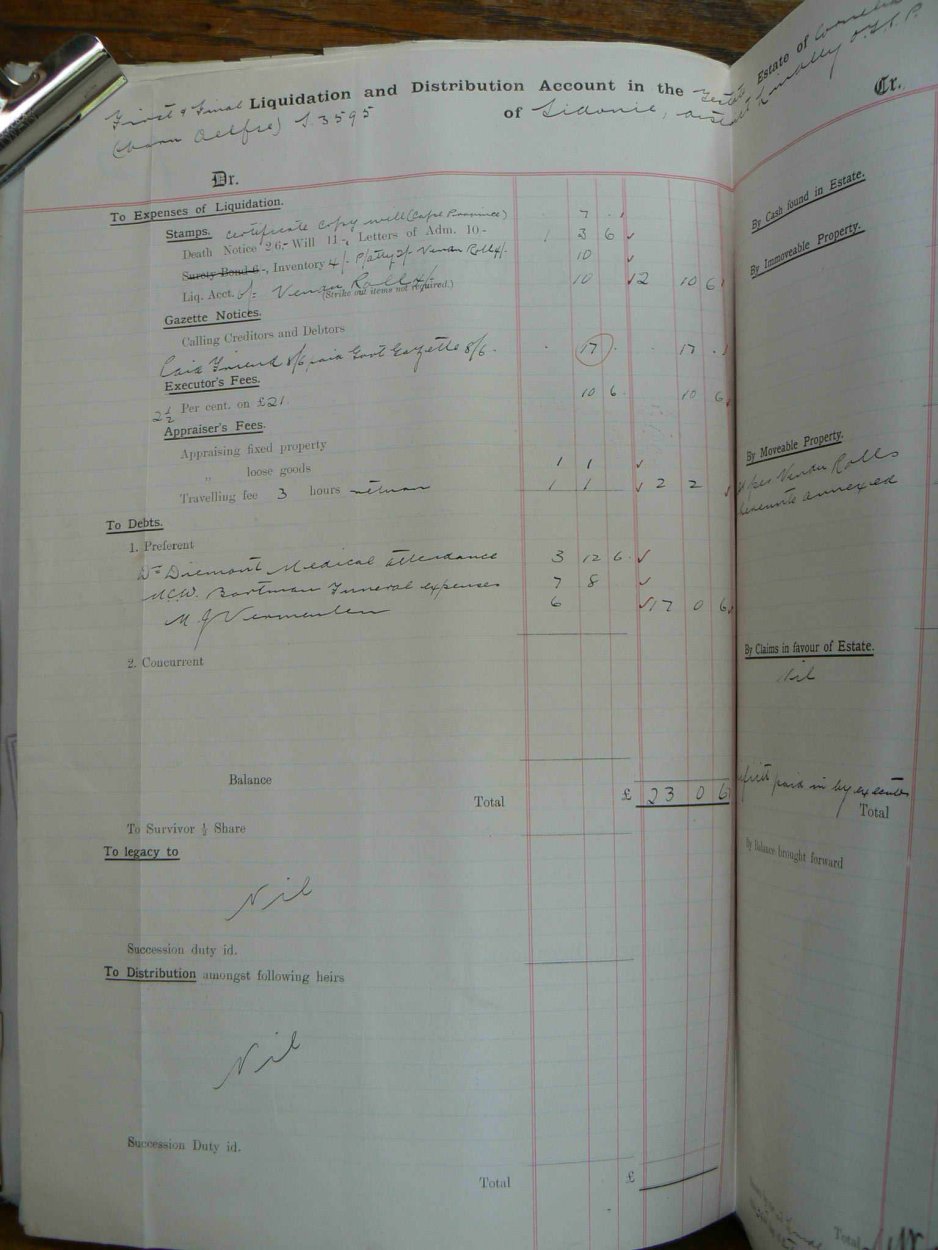 First & Final Liquidation and Distribution Account in the
Estate of
(born Oelfse) S. 3595 of Sidonie,
Dr.
Cr.
To Expenses of Liquidation.
Stamps. Certificate copy will (Cape Province) 7
Death Notice 2/6, Will 1/-, Letters of Adm. 10- 1 3 6
Surety Bond 6-, Inventory 4/- P/atty 2/- Vendu Roll 4/- 10
Liq. Acct. 6/= Vendu Roll 4/- 10 2 10 6
(Strike out items not required.)
Gazette Notices.
Calling Creditors and Debtors
8/6 Govt Gazette 8/6 17 17
Executor's Fees.
2½ Per cent. on £21. 10 6 10 6
Appraiser's Fees.
Appraising fixed property
„ loose goods 1 1
Travelling fee 3 hours return 1 1 2 2
To Debts.
1. Preferent
Dr Diemont Medical attendance 3 12 6
M.C.W. Bartman Funeral expenses 7 8
M J Vermeulen 6 17 0 6
2. Concurrent
Balance
Total £ 23 0 6
To Survivor ½ Share
To legacy to
Nil
Succession duty id.
To Distribution amongst following heirs
Nil
Succession Duty id.
Total £
By Cash found in Estate.
By Immoveable Property.
By Moveable Property.
as per Vendu Rolls
annexed
By Claims in favour of Estate.
Nil
paid in by executor
Total
By Balance brought forward
Total